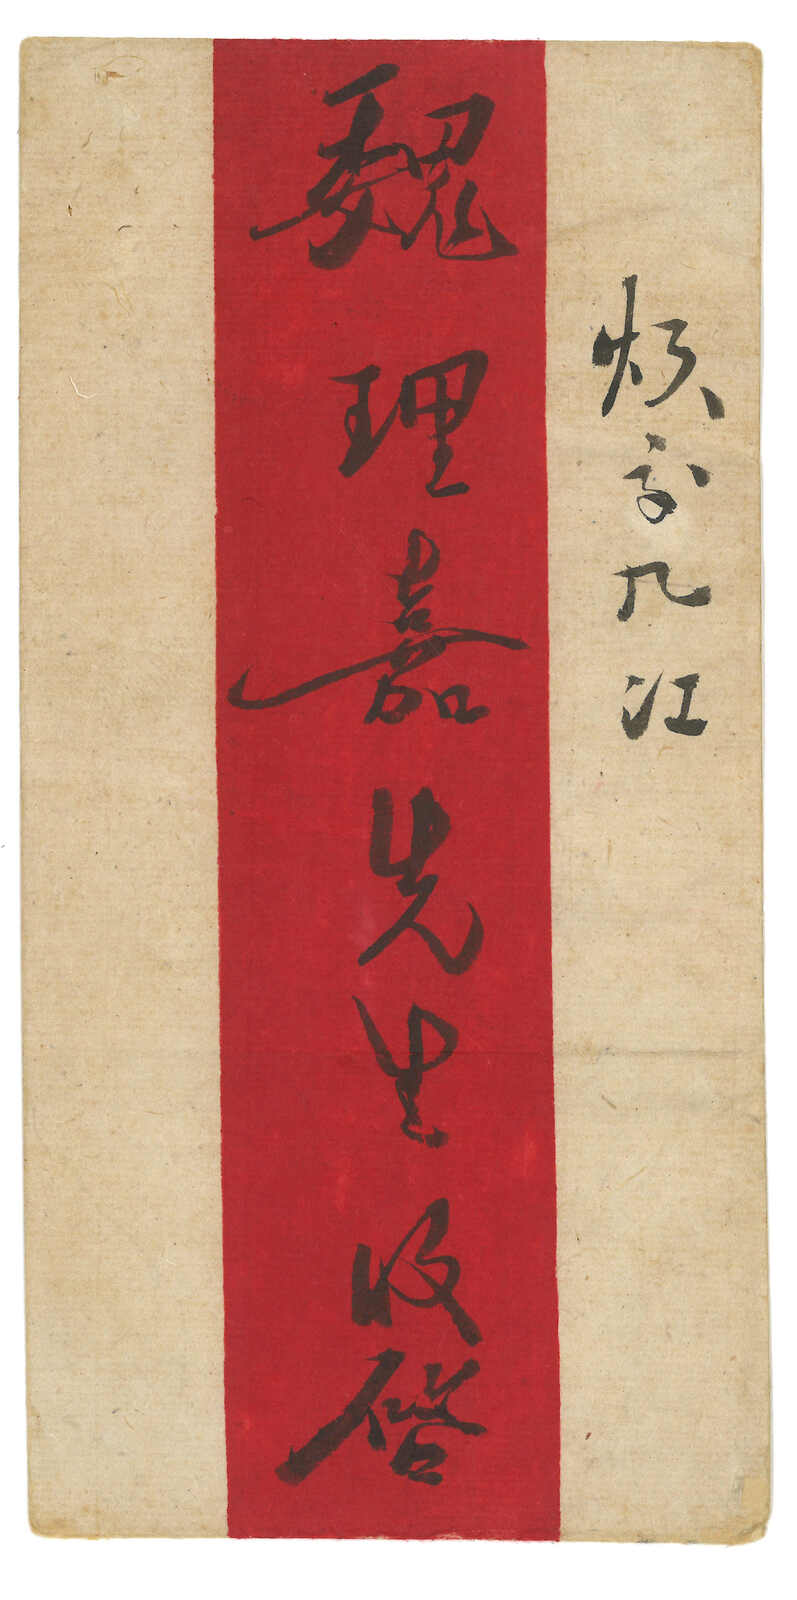 煩寄九江
魏理嘉先生收啓